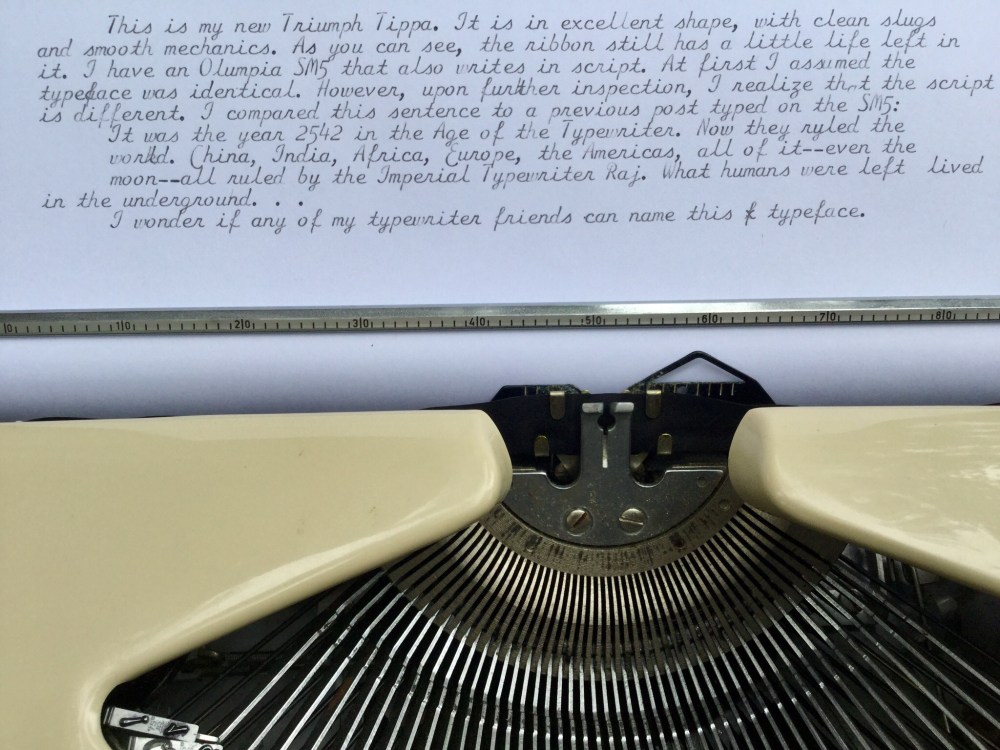 This is my new Triumph Tippa. It is in excellent shape, with clean slugs
and smooth mechanics. As you can see, the ribbon still has a little life left in
it. I have an Olumpia SM5 that also writes in script. At first I assumed the
typeface was identical. However, upon further inspection, I realize that the script
is different. I compared this sentence to a previous post typed on the SM5:
It was the year 2542 in the Age of the Typewriter. Now they ryled the
world. China, India, Africa, Europe, the Americas, all of it--even the
moon--all ruled by the Imperial Typewriter Raj. What humans were left lived
in the underground. . .
I wonder if any of my typewriter friends can name this typeface.
0 10 20 30 40 50 60 70 80